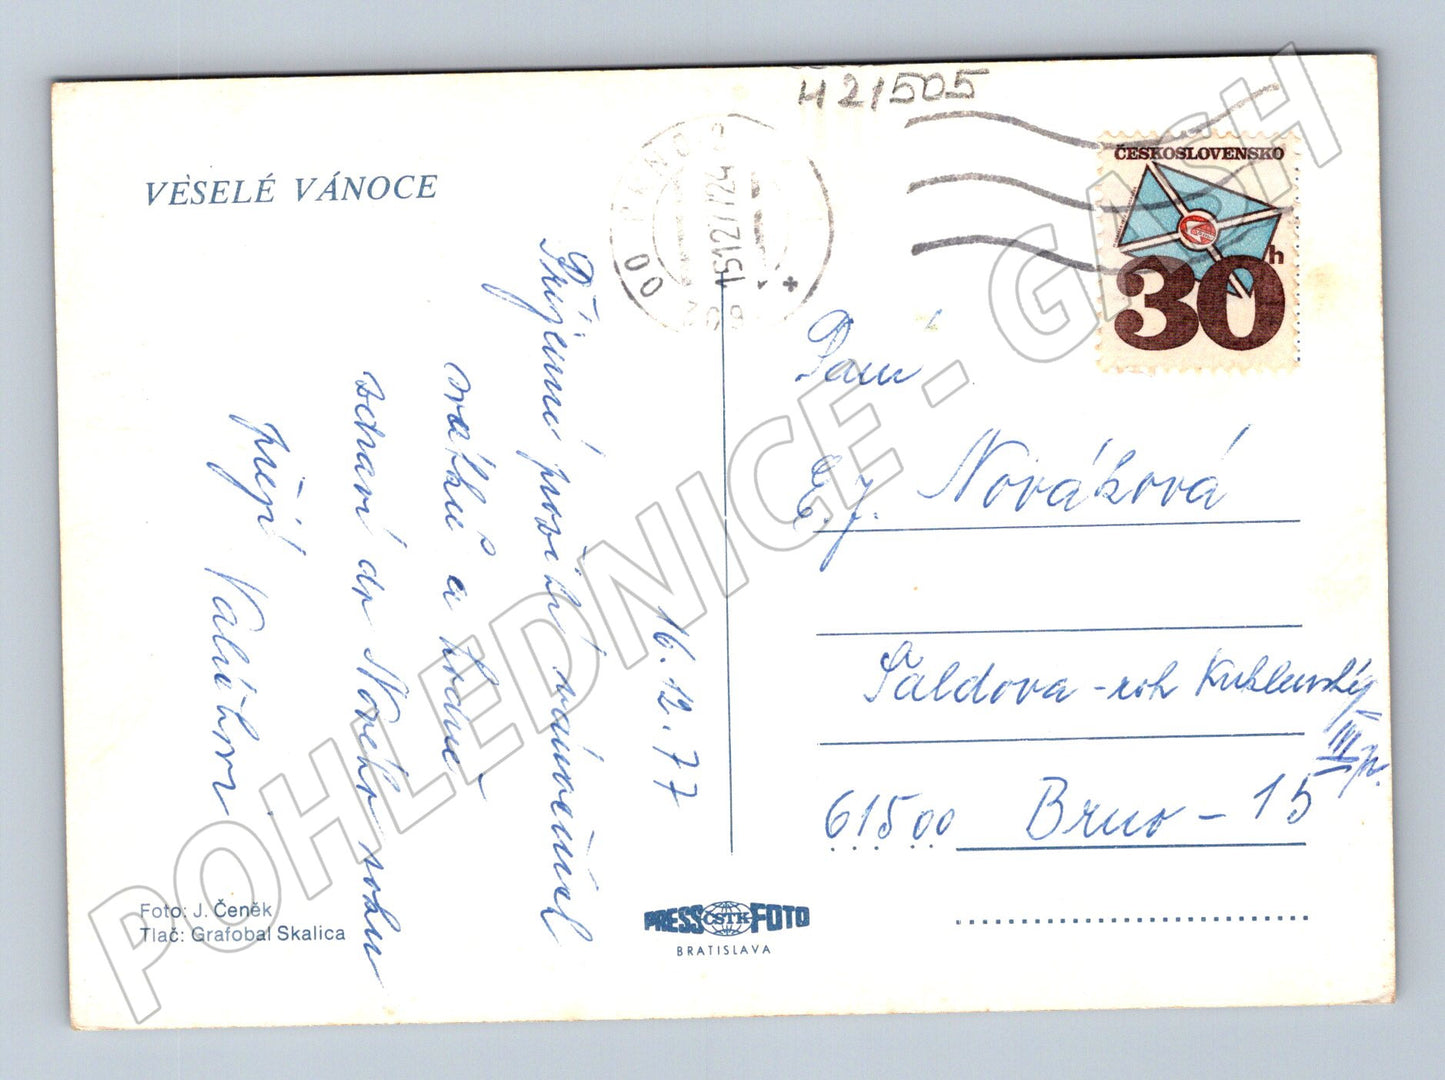 H21505
VESELÉ VÁNOCE
ČESKOSLOVENSKO
30
h
Příjemné prožití vánočních
svátků a hodně
zdraví do Nového roku
přejí
16.12.77
Paní
Nováková
Šaldova - roh Kuklenská
III p.
61500 Brno - 15
Foto: J. Čeněk
Tlač: Grafobal Skalica
PRESS ČSTK FOTO
BRATISLAVA
POHLEDNICE - GASH